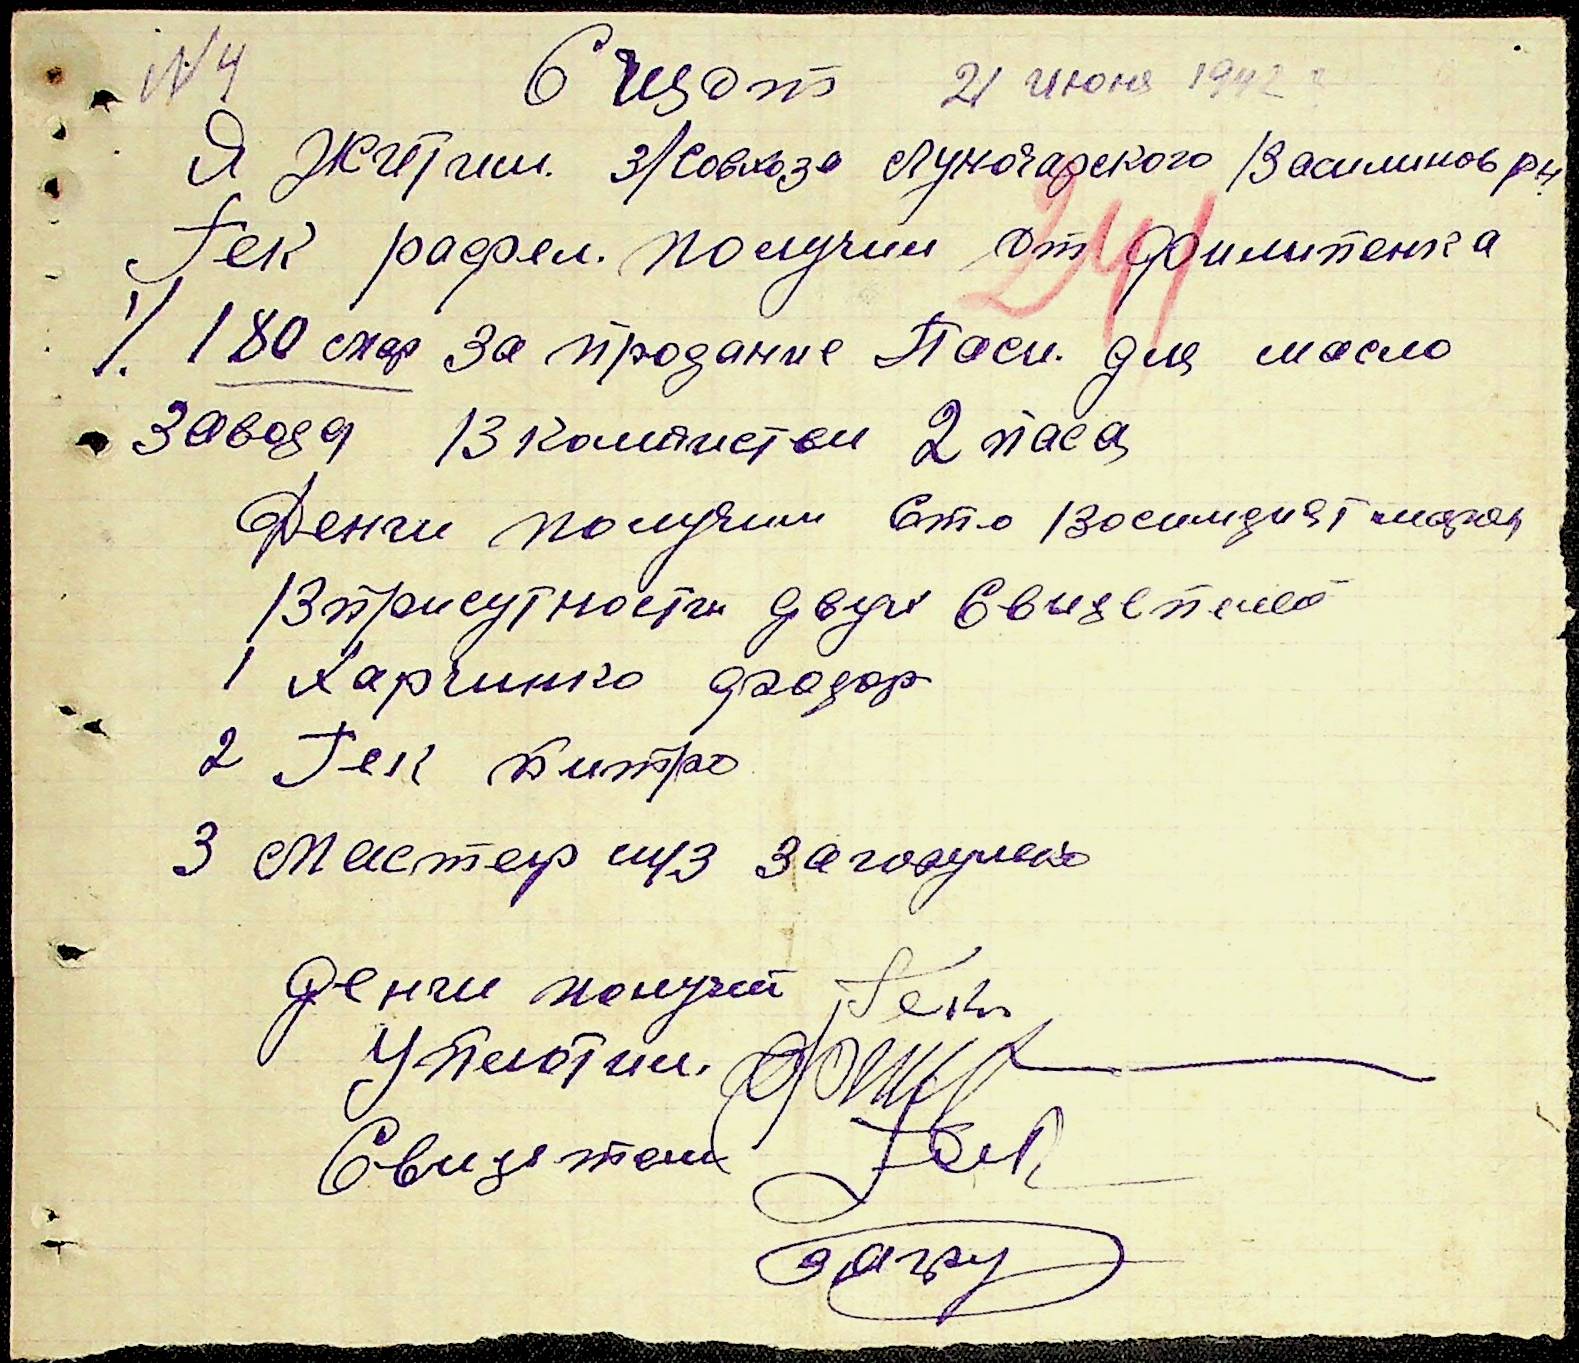 N 4 Сщот 21 июня 1942 г
Я Житил. з/совхоза Луночарского Василинов рн
Гек рафел. получил от Филипенка
241
1/. 180 мар за продание Паси. для масло
завода В количестви 2 паса
Денги получил Сто Восимдцят марок
В присутности двух Свидетелей
1 Харчинко Фёдор
2 Гек Питро
3 Мастер из
денги получил Гек
Уплотил.
Свидетели Гек